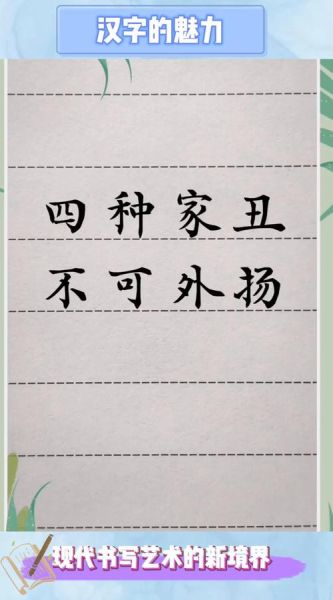 汉字的魅力
四种家丑
不可外扬
现代书写艺术的新境界